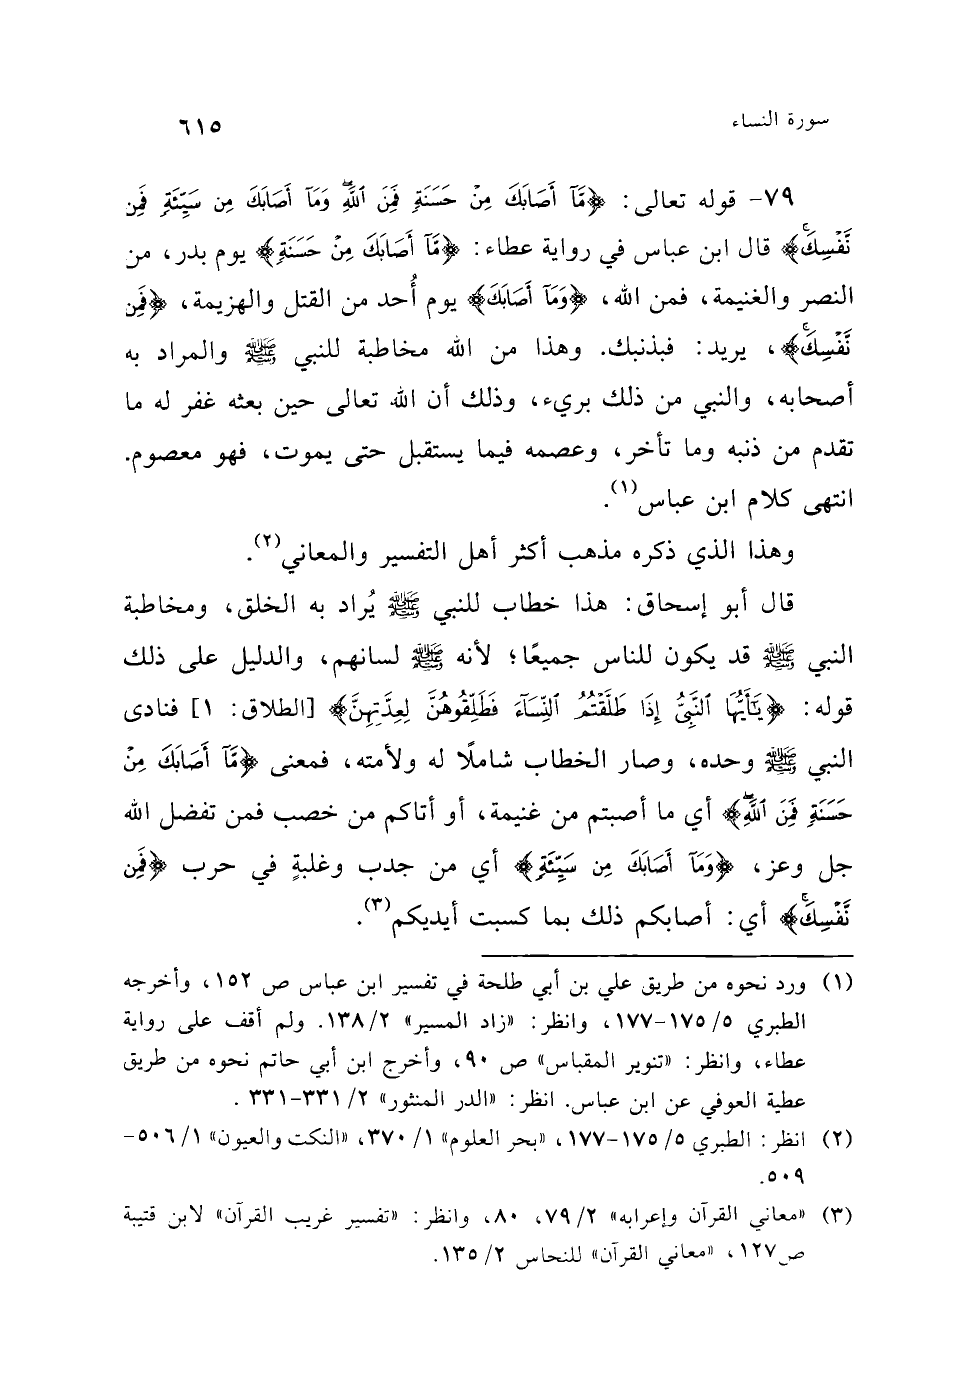 سورة النساء ٦١٥
٧٩- قوله تعالى: ﴿مَّآ أَصَابَكَ مِنْ حَسَنَةٍ فَمِنَ ٱللَّهِۖ وَمَآ أَصَابَكَ مِن سَيِّئَةٍ فَمِن
نَّفْسِكَۚ﴾ قال ابن عباس في رواية عطاء: ﴿مَّآ أَصَابَكَ مِنْ حَسَنَةٍ﴾ يوم بدر، من
النصر والغنيمة، فمن الله، ﴿وَمَآ أَصَابَكَ﴾ يوم أُحد من القتل والهزيمة، ﴿فَمِن
نَّفْسِكَۚ﴾، يريد: فبذنبك. وهذا من الله مخاطبة للنبي ﷺ والمراد به
أصحابه، والنبي من ذلك بريء، وذلك أن الله تعالى حين بعثه غفر له ما
تقدم من ذنبه وما تأخر، وعصمه فيما يستقبل حتى يموت، فهو معصوم.
انتهى كلام ابن عباس(١).
وهذا الذي ذكره مذهب أكثر أهل التفسير والمعاني(٢).
قال أبو إسحاق: هذا خطاب للنبي ﷺ يُراد به الخلق، ومخاطبة
النبي ﷺ قد يكون للناس جميعًا؛ لأنه ﷺ لسانهم، والدليل على ذلك
قوله: ﴿يَٰٓأَيُّهَا ٱلنَّبِىُّ إِذَا طَلَّقْتُمُ ٱلنِّسَآءَ فَطَلِّقُوهُنَّ لِعِدَّتِهِنَّ﴾ [الطلاق: ١] فنادى
النبي ﷺ وحده، وصار الخطاب شاملًا له ولأمته، فمعنى ﴿مَّآ أَصَابَكَ مِنْ
حَسَنَةٍ فَمِنَ ٱللَّهِۖ﴾ أي ما أصبتم من غنيمة، أو أتاكم من خصب فمن تفضل الله
جل وعز، ﴿وَمَآ أَصَابَكَ مِن سَيِّئَةٍ﴾ أي من جدب وغلبةٍ في حرب ﴿فَمِن
نَّفْسِكَۚ﴾ أي: أصابكم ذلك بما كسبت أيديكم(٣).
(١) ورد نحوه من طريق علي بن أبي طلحة في تفسير ابن عباس ص ١٥٢، وأخرجه
الطبري ٥/ ١٧٥-١٧٧، وانظر: «زاد المسير» ٢/ ١٣٨. ولم أقف على رواية
عطاء، وانظر: «تنوير المقباس» ص ٩٠، وأخرج ابن أبي حاتم نحوه من طريق
عطية العوفي عن ابن عباس. انظر: «الدر المنثور» ٢/ ٣٣١-٣٣١ .
(٢) انظر: الطبري ٥/ ١٧٥-١٧٧، «بحر العلوم» ١/ ٣٧٠، «النكت والعيون» ١/ ٥٠٦-
٥٠٩.
(٣) «معاني القرآن وإعرابه» ٢/ ٧٩، ٨٠، وانظر: «تفسير غريب القرآن» لابن قتيبة
ص١٢٧، «معاني القرآن» للنحاس ٢/ ١٣٥.